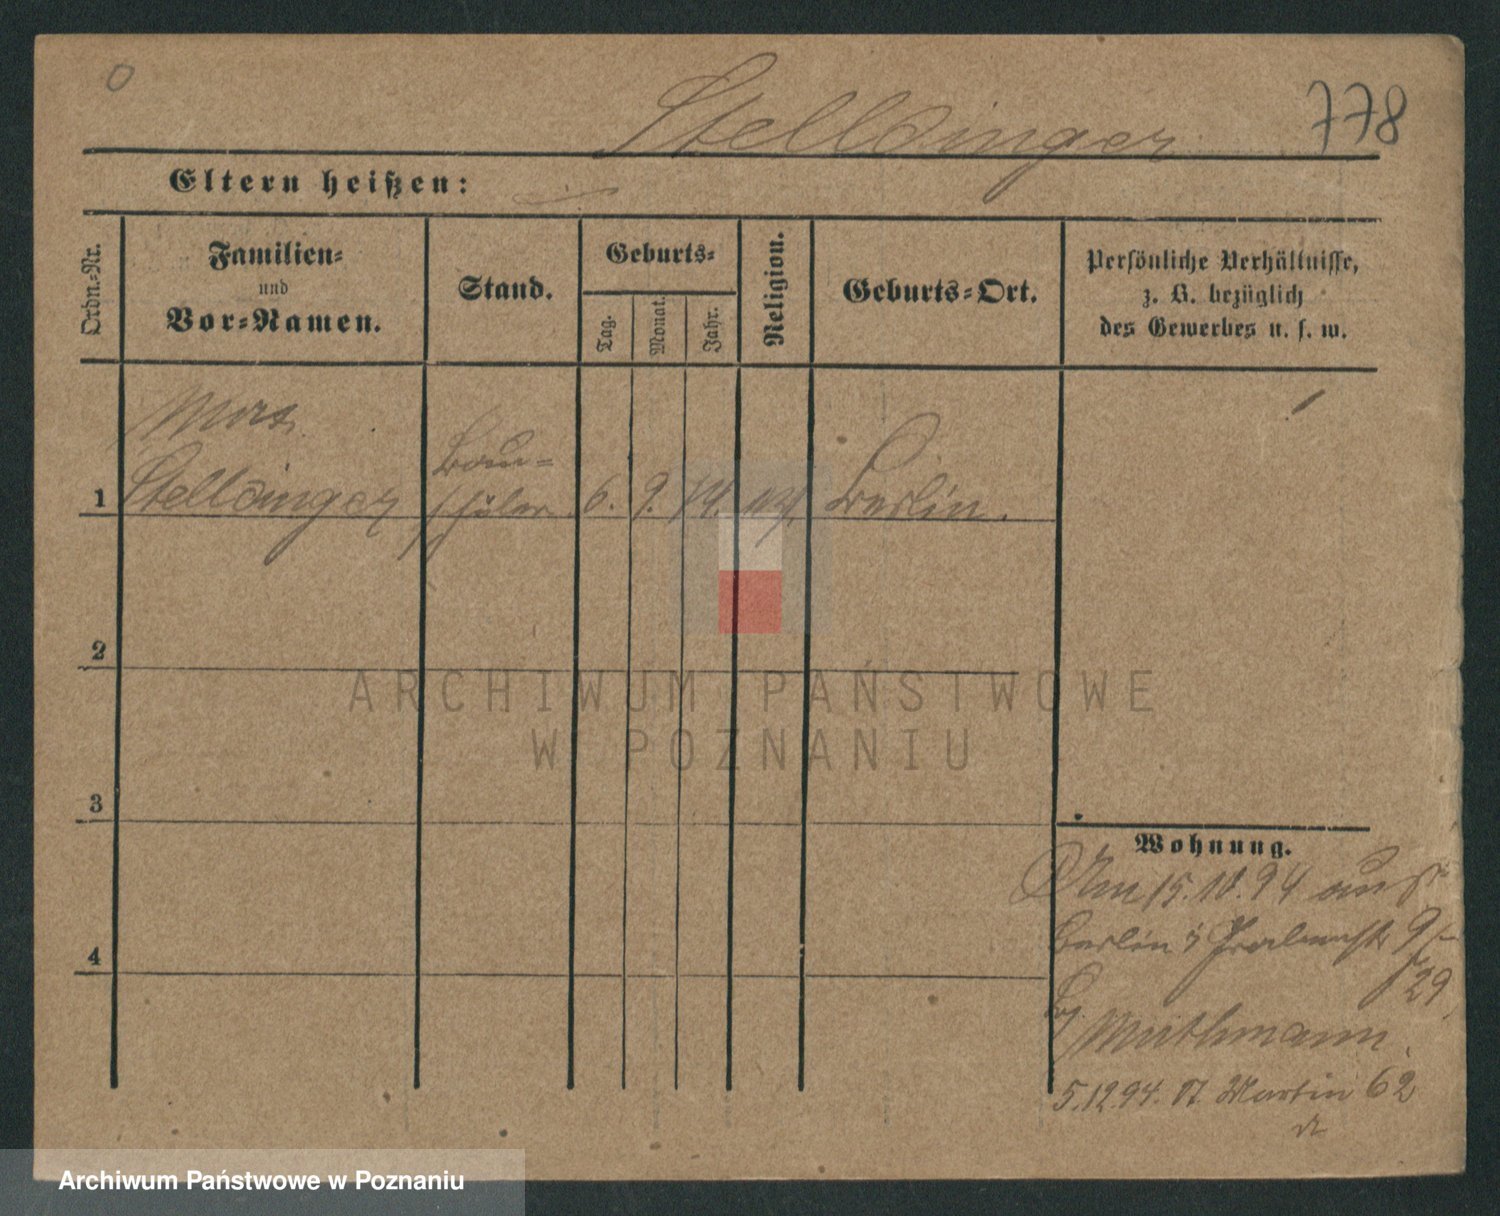 Stelldinger 778
Eltern heißen:
Ordn.-Nr.
Familien-
und
Vor-Namen.
Stand.
Geburts-
Tag.
Monat.
Jahr.
Religion.
Geburts-Ort.
Persönliche Verhältnisse,
z. B. bezüglich
des Gewerbes u. s. w.
Bau-
1 Stelldinger schüler 6. 9. 74. Berlin.
2
3
4
Wohnung.
Am 15.10.94 aus
Berlin 9
29
Muthmann
5.12.94. St. Martin 62
ARCHIWUM PAŃSTWOWE
W POZNANIU
Archiwum Państwowe w Poznaniu